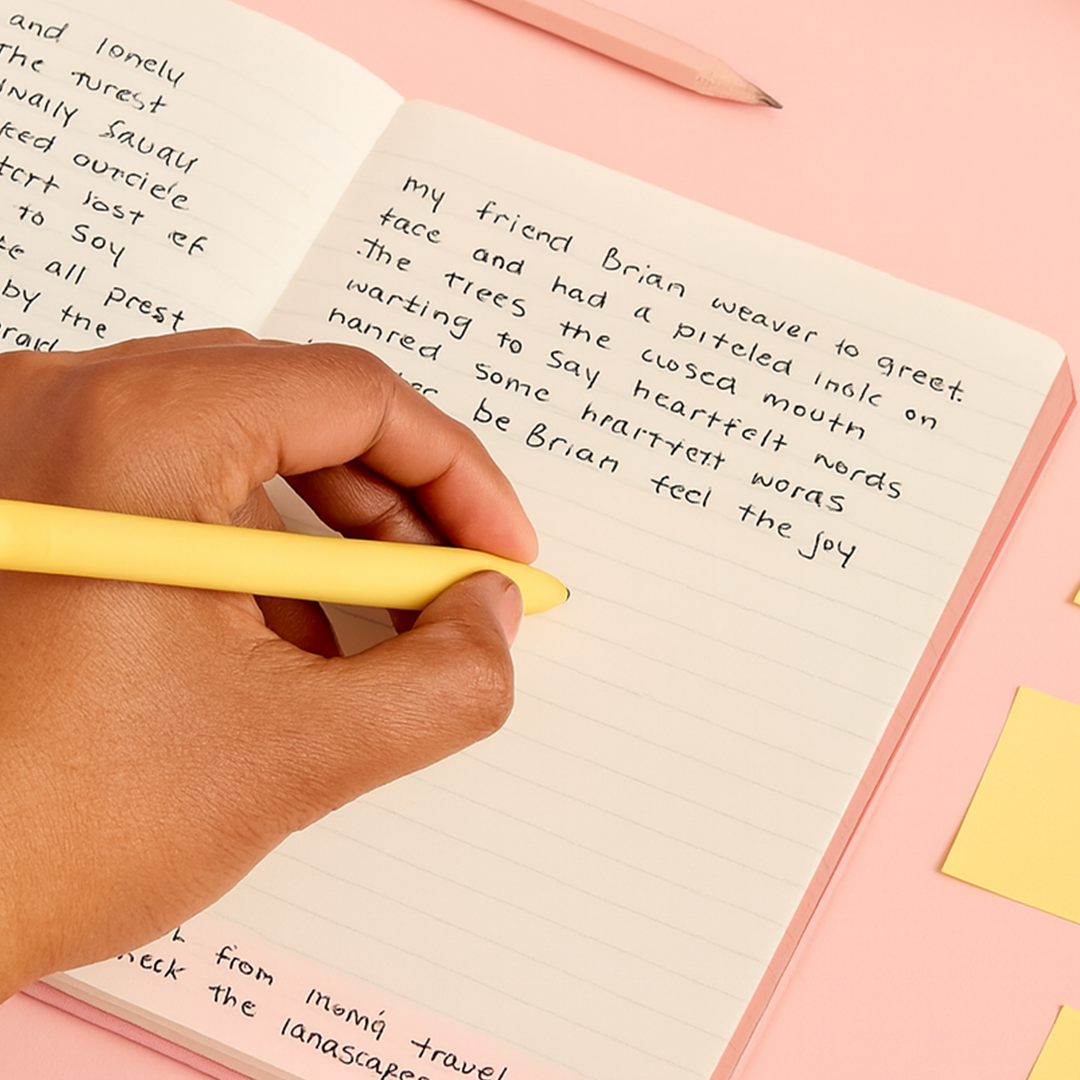 and lonely
The turest
inally savau
ked ourciele
tort lost ef
to soy
te all prest
by the
my friend Brian weaver to greet.
face and had a piteled inolc on
The trees the cwosed mouth
warting to say heartfelt nords
nanred some hrartfett woras
be Brian feel the joy
from momá travel
heck the lanascapes